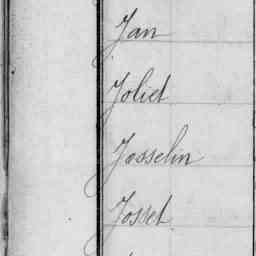 Jan
Joliet
Josselin
Josset